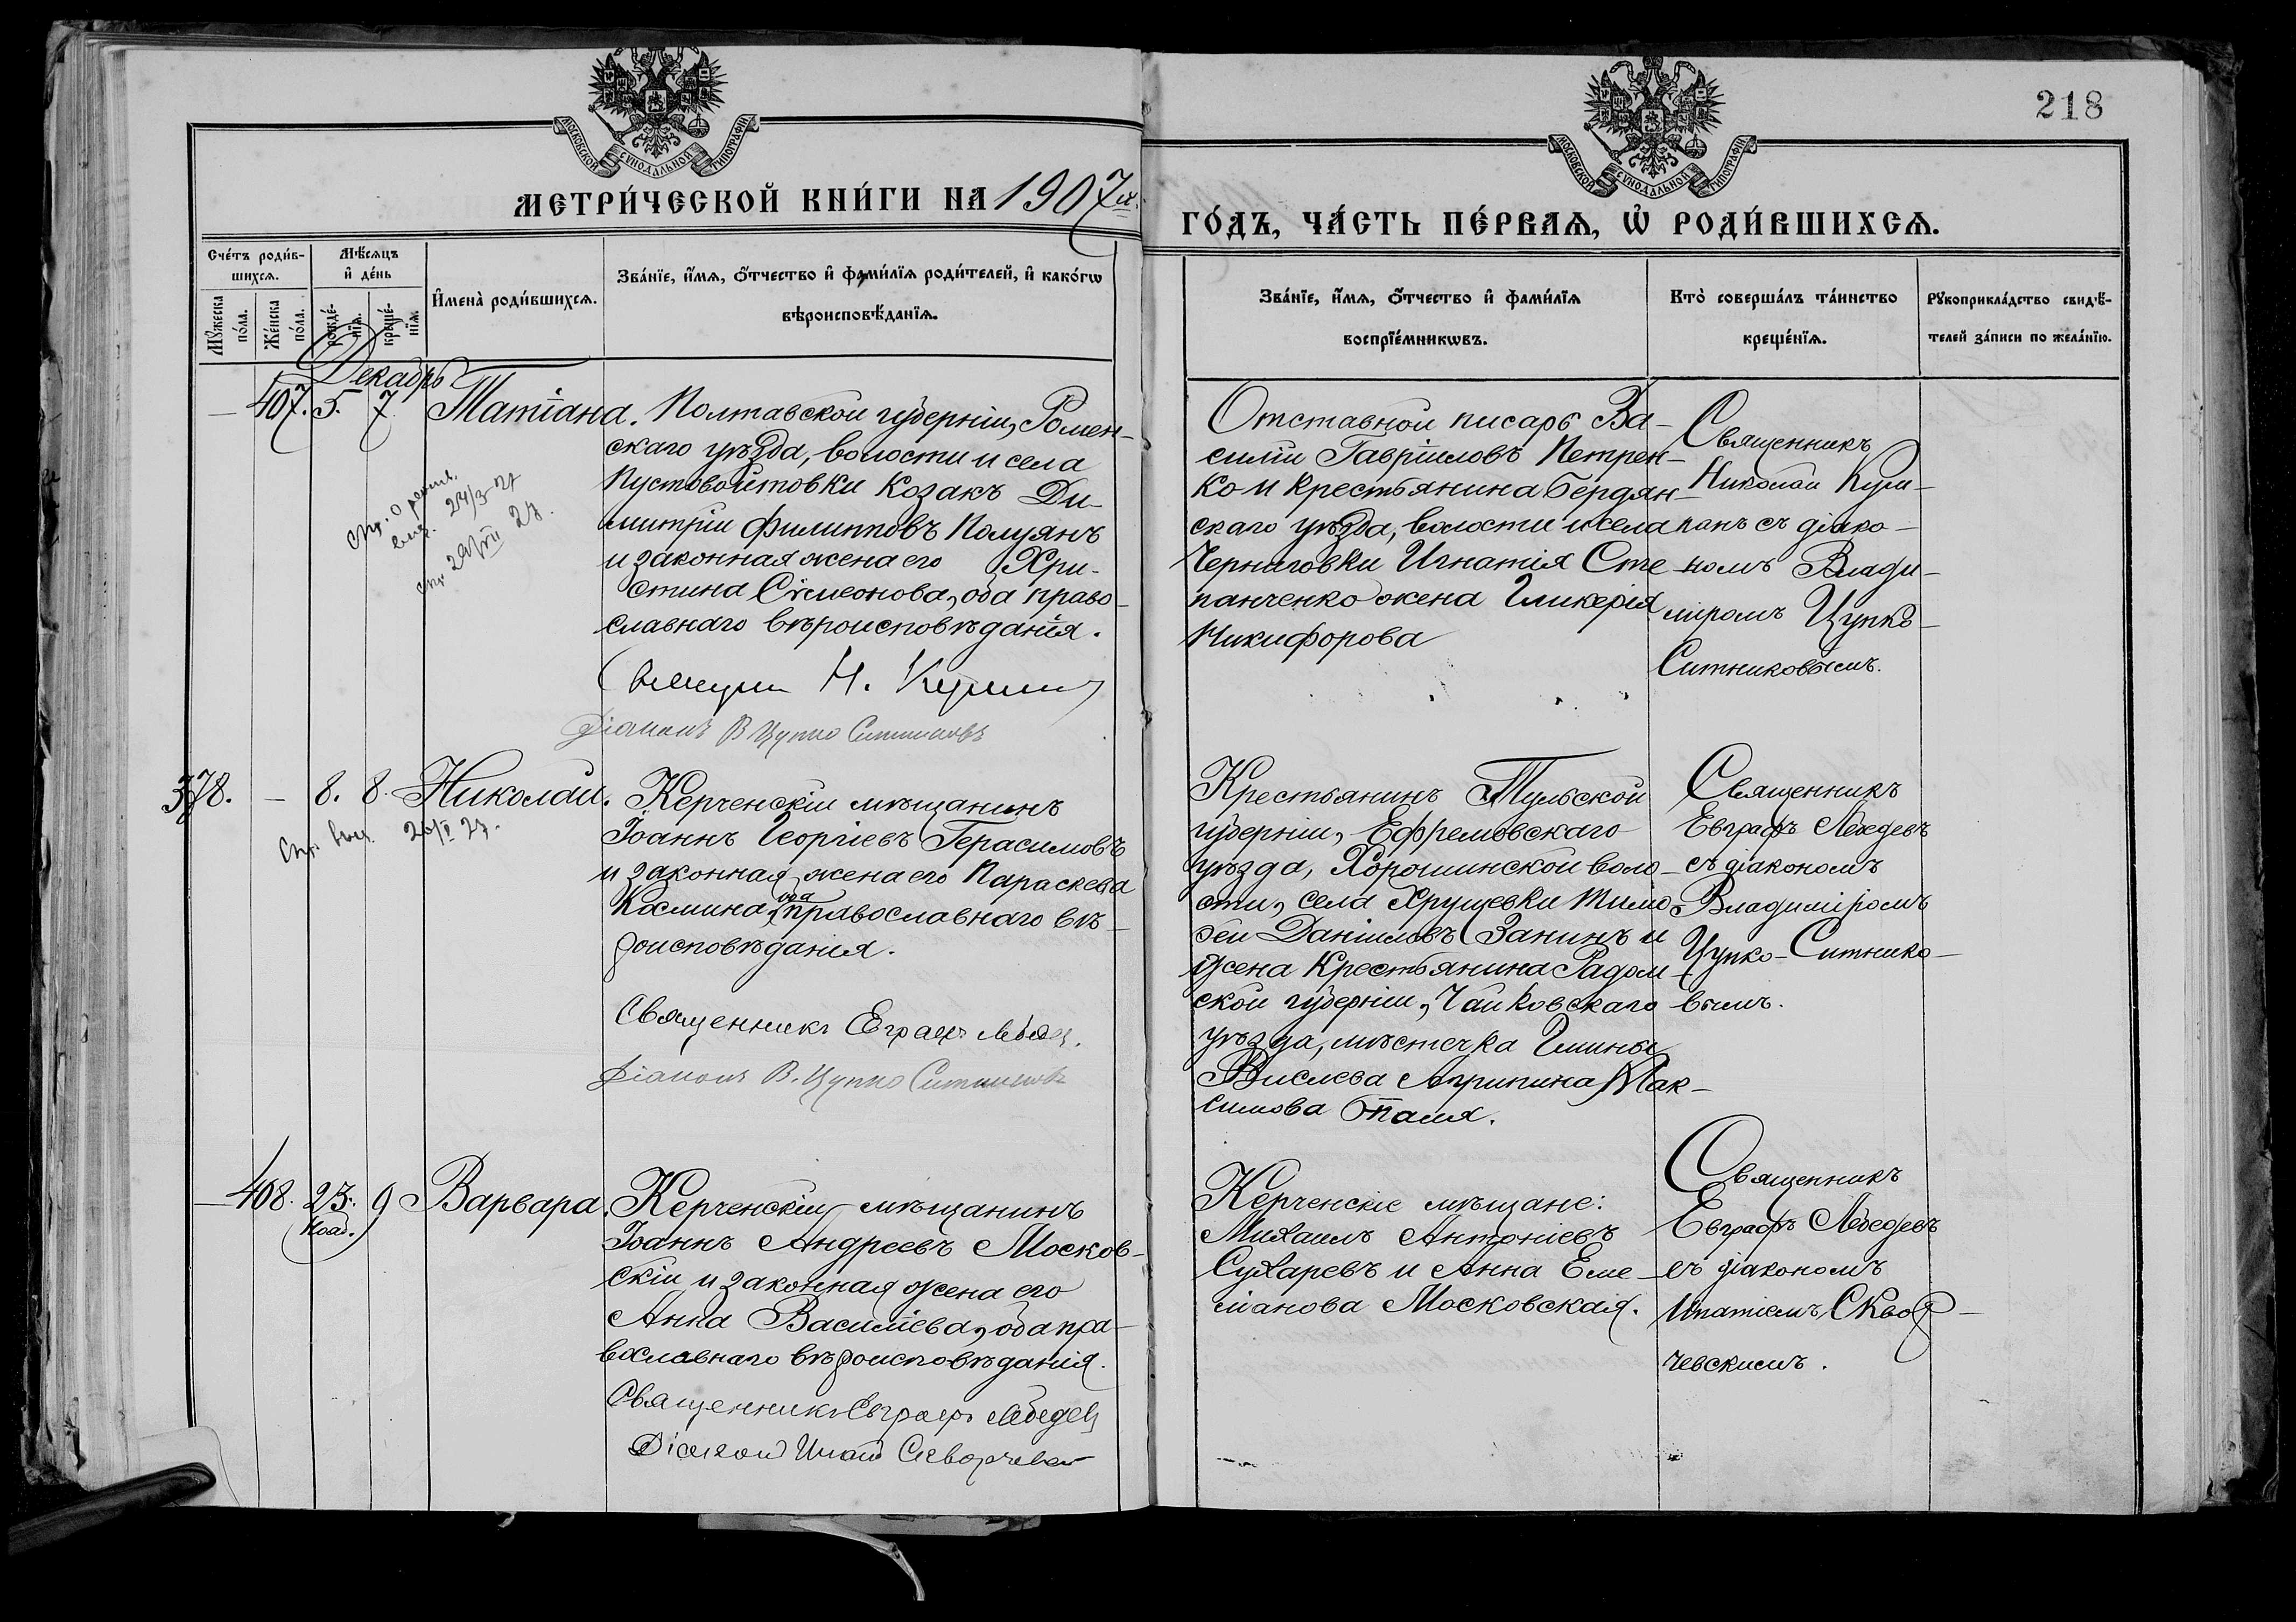 218
МОСКОВСКОЙ СУНОДАЛЬНОЙ ТИПОГРАФІИ
МОСКОВСКОЙ СУНОДАЛЬНОЙ ТИПОГРАФІИ
МЕТРИ́ЧЕСКОЙ КНИ́ГИ НА 1907й.
ГО́ДЪ, ЧА́СТЬ ПЕ́РВАѦ, Ѡ҆ РОДИ́ВШИХСѦ.
Сче́тъ роди́в-
шихсѧ.
Мꙋ́жеска
по́ла.
Же́нска
по́ла.
Мѣ́сѧцъ
и҆ де́нь
рожде́-
нїѧ.
креще́-
нїѧ.
И҆мена̀ роди́вшихсѧ.
Зва́нїе, и҆́мѧ, ѻ҆́тчество и҆ фами́лїѧ роди́телей, и҆ како́гѡ
вѣроисповѣ́данїѧ.
Зва́нїе, и҆́мѧ, ѻ҆́тчество и҆ фами́лїѧ
воспрїе́мникѡвъ.
Кто̀ соверша́лъ та́инство
креще́нїѧ.
Рꙋкоприкла́дство свидѣ́-
телей за́писи по жела́нїю.
Декабрь
— 407. 5. 7. Татіана.
Полтавской губерніи, Ромен-
скаго уѣзда, волости и села
Пустовойтовки козакъ Ди-
митрій Филипповъ Полуянъ
и законная жена его Хри-
стина Сѵмеонова, оба право-
славнаго вѣроисповѣданія.
Н.
Діаконъ В Цупко Ситниковъ
24/3 27
29/VII 27.
Отставной писарь Ва-
силій Гавріиловъ Петрен-
ко и крестьянина Бердян-
скаго уѣзда, волости и села
Черниговки Игнатія Сте
панченко жена Гликерія
Никифорова
Священникъ
Николай Кули-
панъ съ діако-
номъ Влади-
міромъ Цупко-
Ситниковымъ.
378. — 8. 8. Николай.
26/V 27.
Керченскій мѣщанинъ
Іоаннъ Георгіевъ Герасимовъ
и законная жена его Параскева
Космина, оба православнаго вѣ-
роисповѣданія.
Священникъ Евграфъ Лебедев.
Діаконъ В. Цупко Ситниковъ
Крестьянинъ Тульской
губерніи, Ефремовскаго
уѣзда, Хорошинской воло-
сти, села Хрущевки Тимо
ѳей Даніиловъ Занинъ и
жена крестьянина Радом-
ской губерніи, Чайковскаго
уѣзда, мѣстечка Гмины
Вислева Агрипина Мак-
симова Паля.
Священникъ
Евграфъ Лебедевъ
съ діакономъ
Владиміромъ
Цупко-Ситнико-
вымъ.
— 408. 23. 9 Варвара.
Нояб.
Керченскій мѣщанинъ
Іоаннъ Андреевъ Москов-
скій и законная жена его
Анна Василіева, оба пра-
вославнаго вѣроисповѣданія.
Священникъ Евграфъ Лебедев
Діакон Ипат Скворчевск
Керченскіе мѣщане:
Михаилъ Антоніевъ
Сухаревъ и Анна Еме-
ліанова Московская.
Священникъ
Евграфъ Лебедевъ
съ діакономъ
Ипатіемъ Сквор-
чевскимъ.